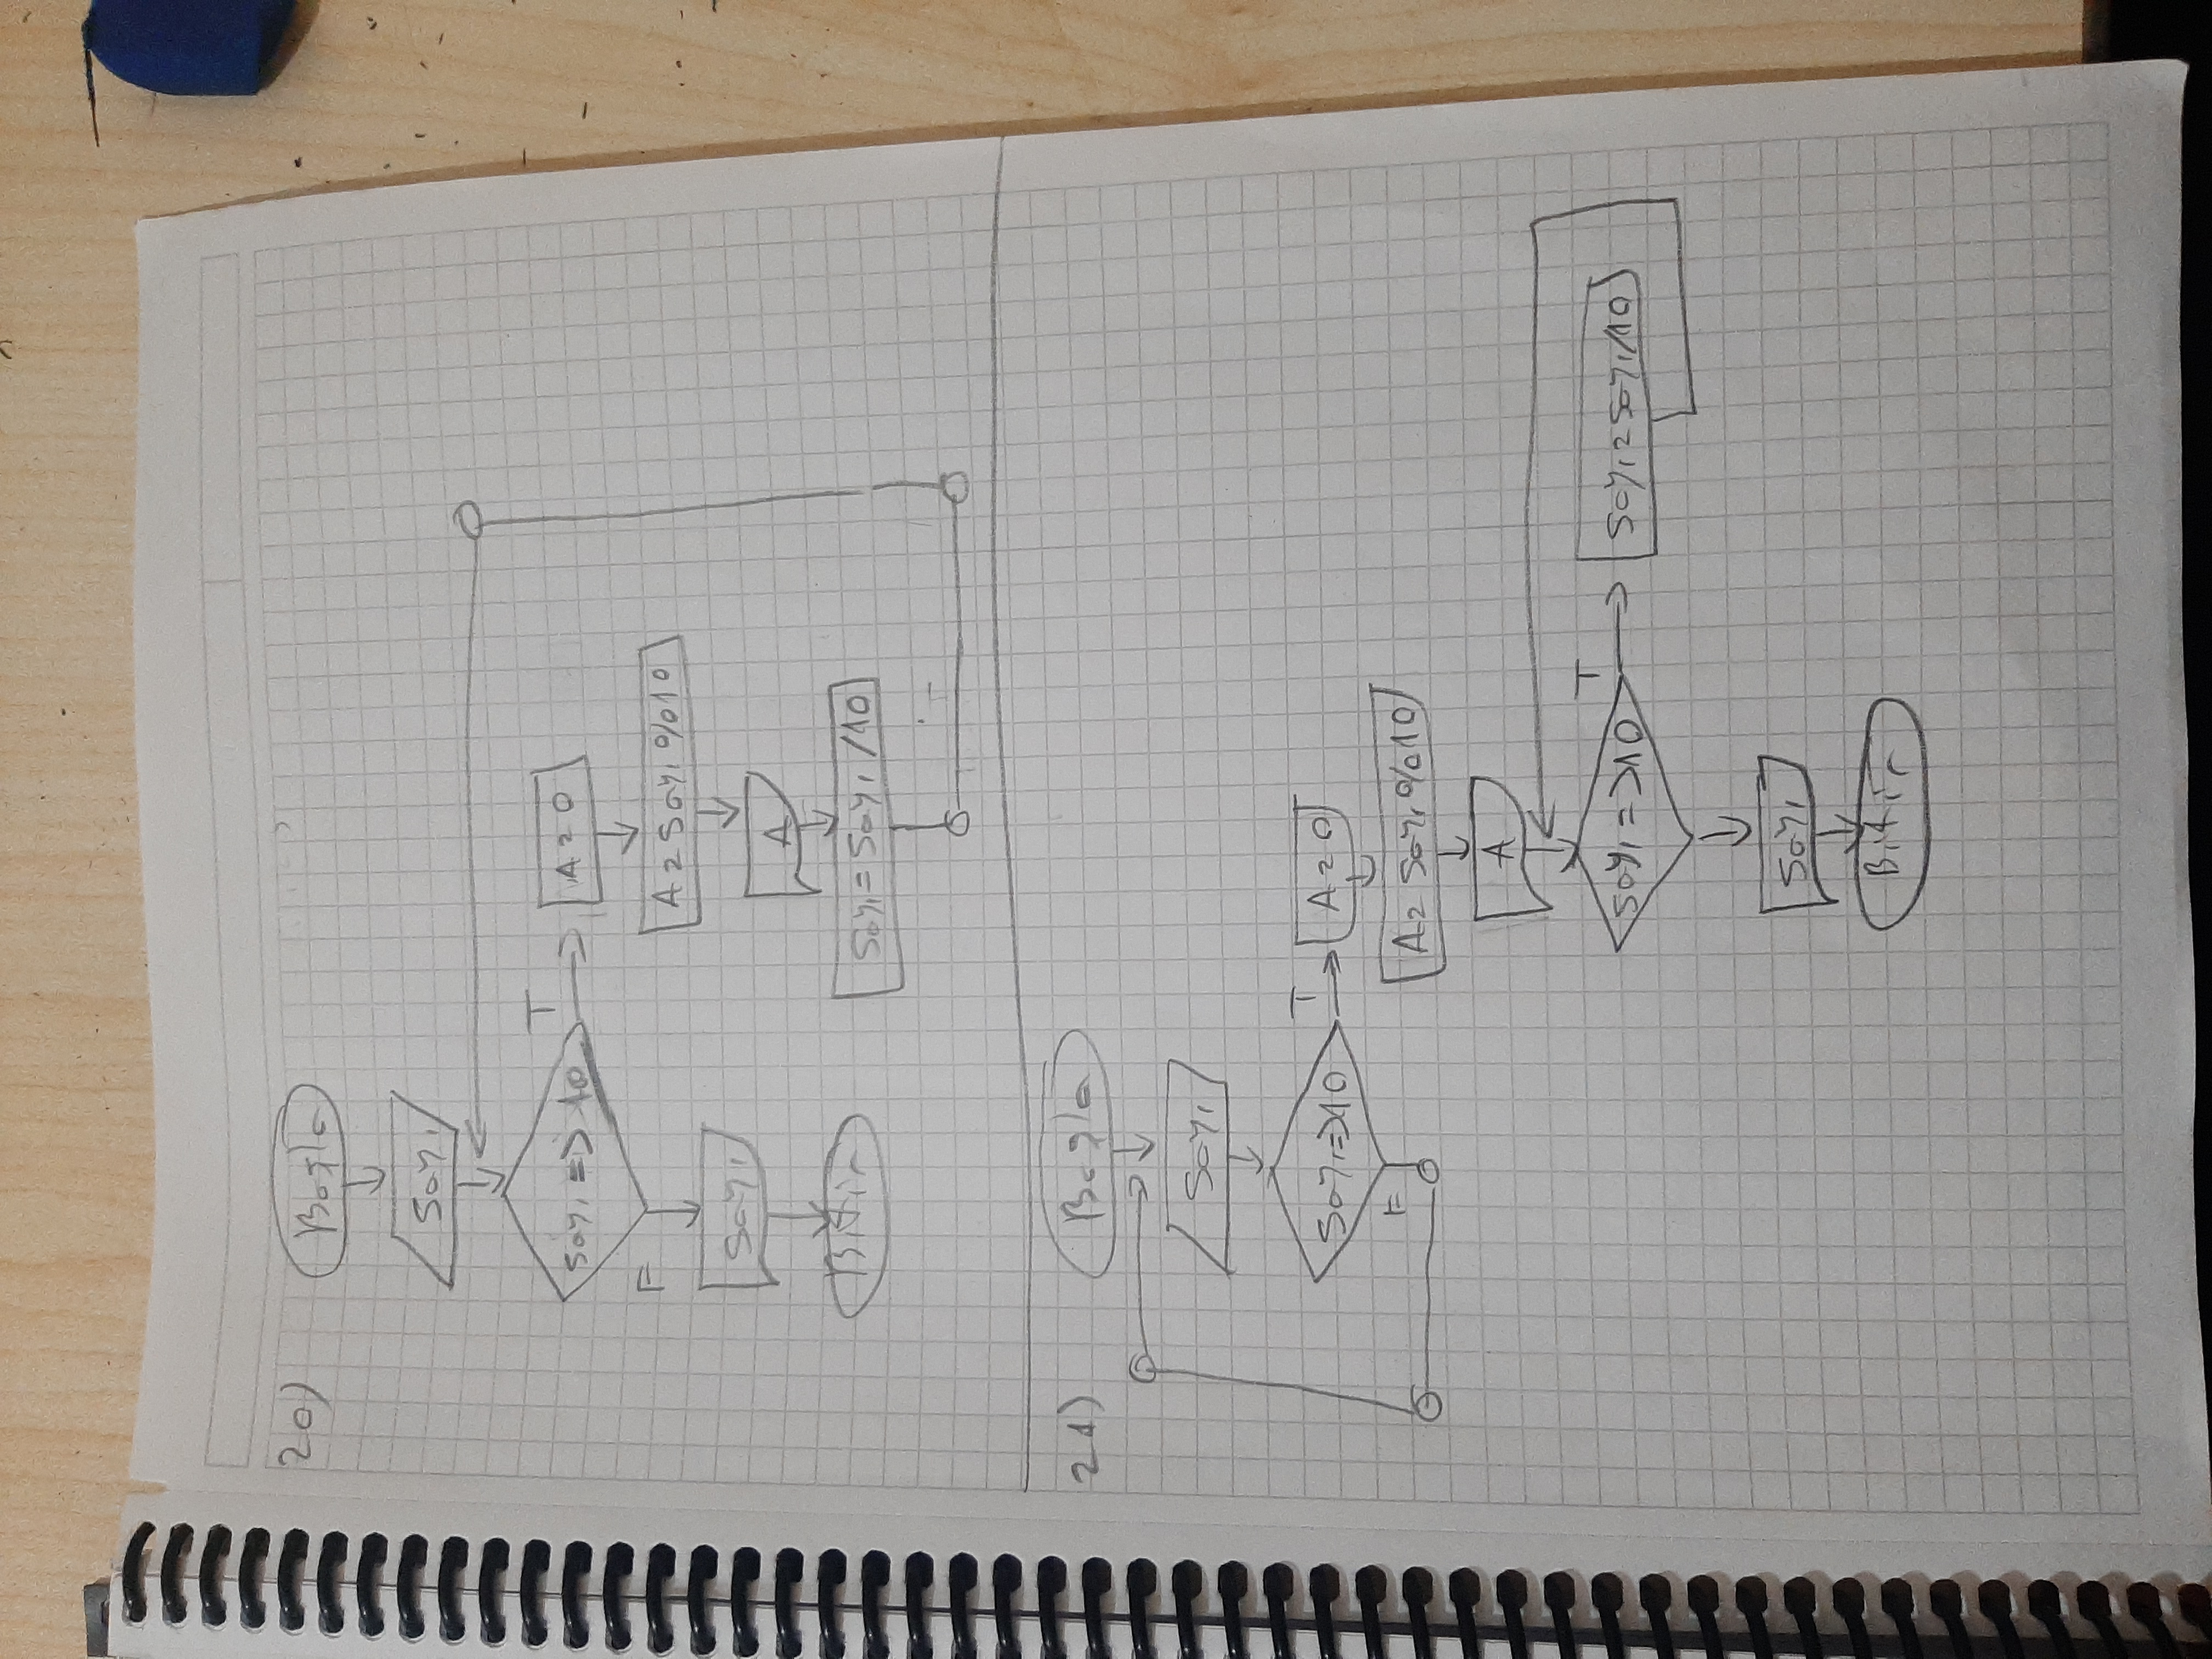 20)
Başla
Sayı
Sayı => 10
T
A = 0
F
A = Sayı %10
Sayı
A
Bitir
Sayı = Sayı /10
21)
Başla
Sayı
Sayı => 10
T
A = 0
F
A = Sayı %10
A
Sayı => 10
T
Sayı = Sayı/10
Sayı
Bitir